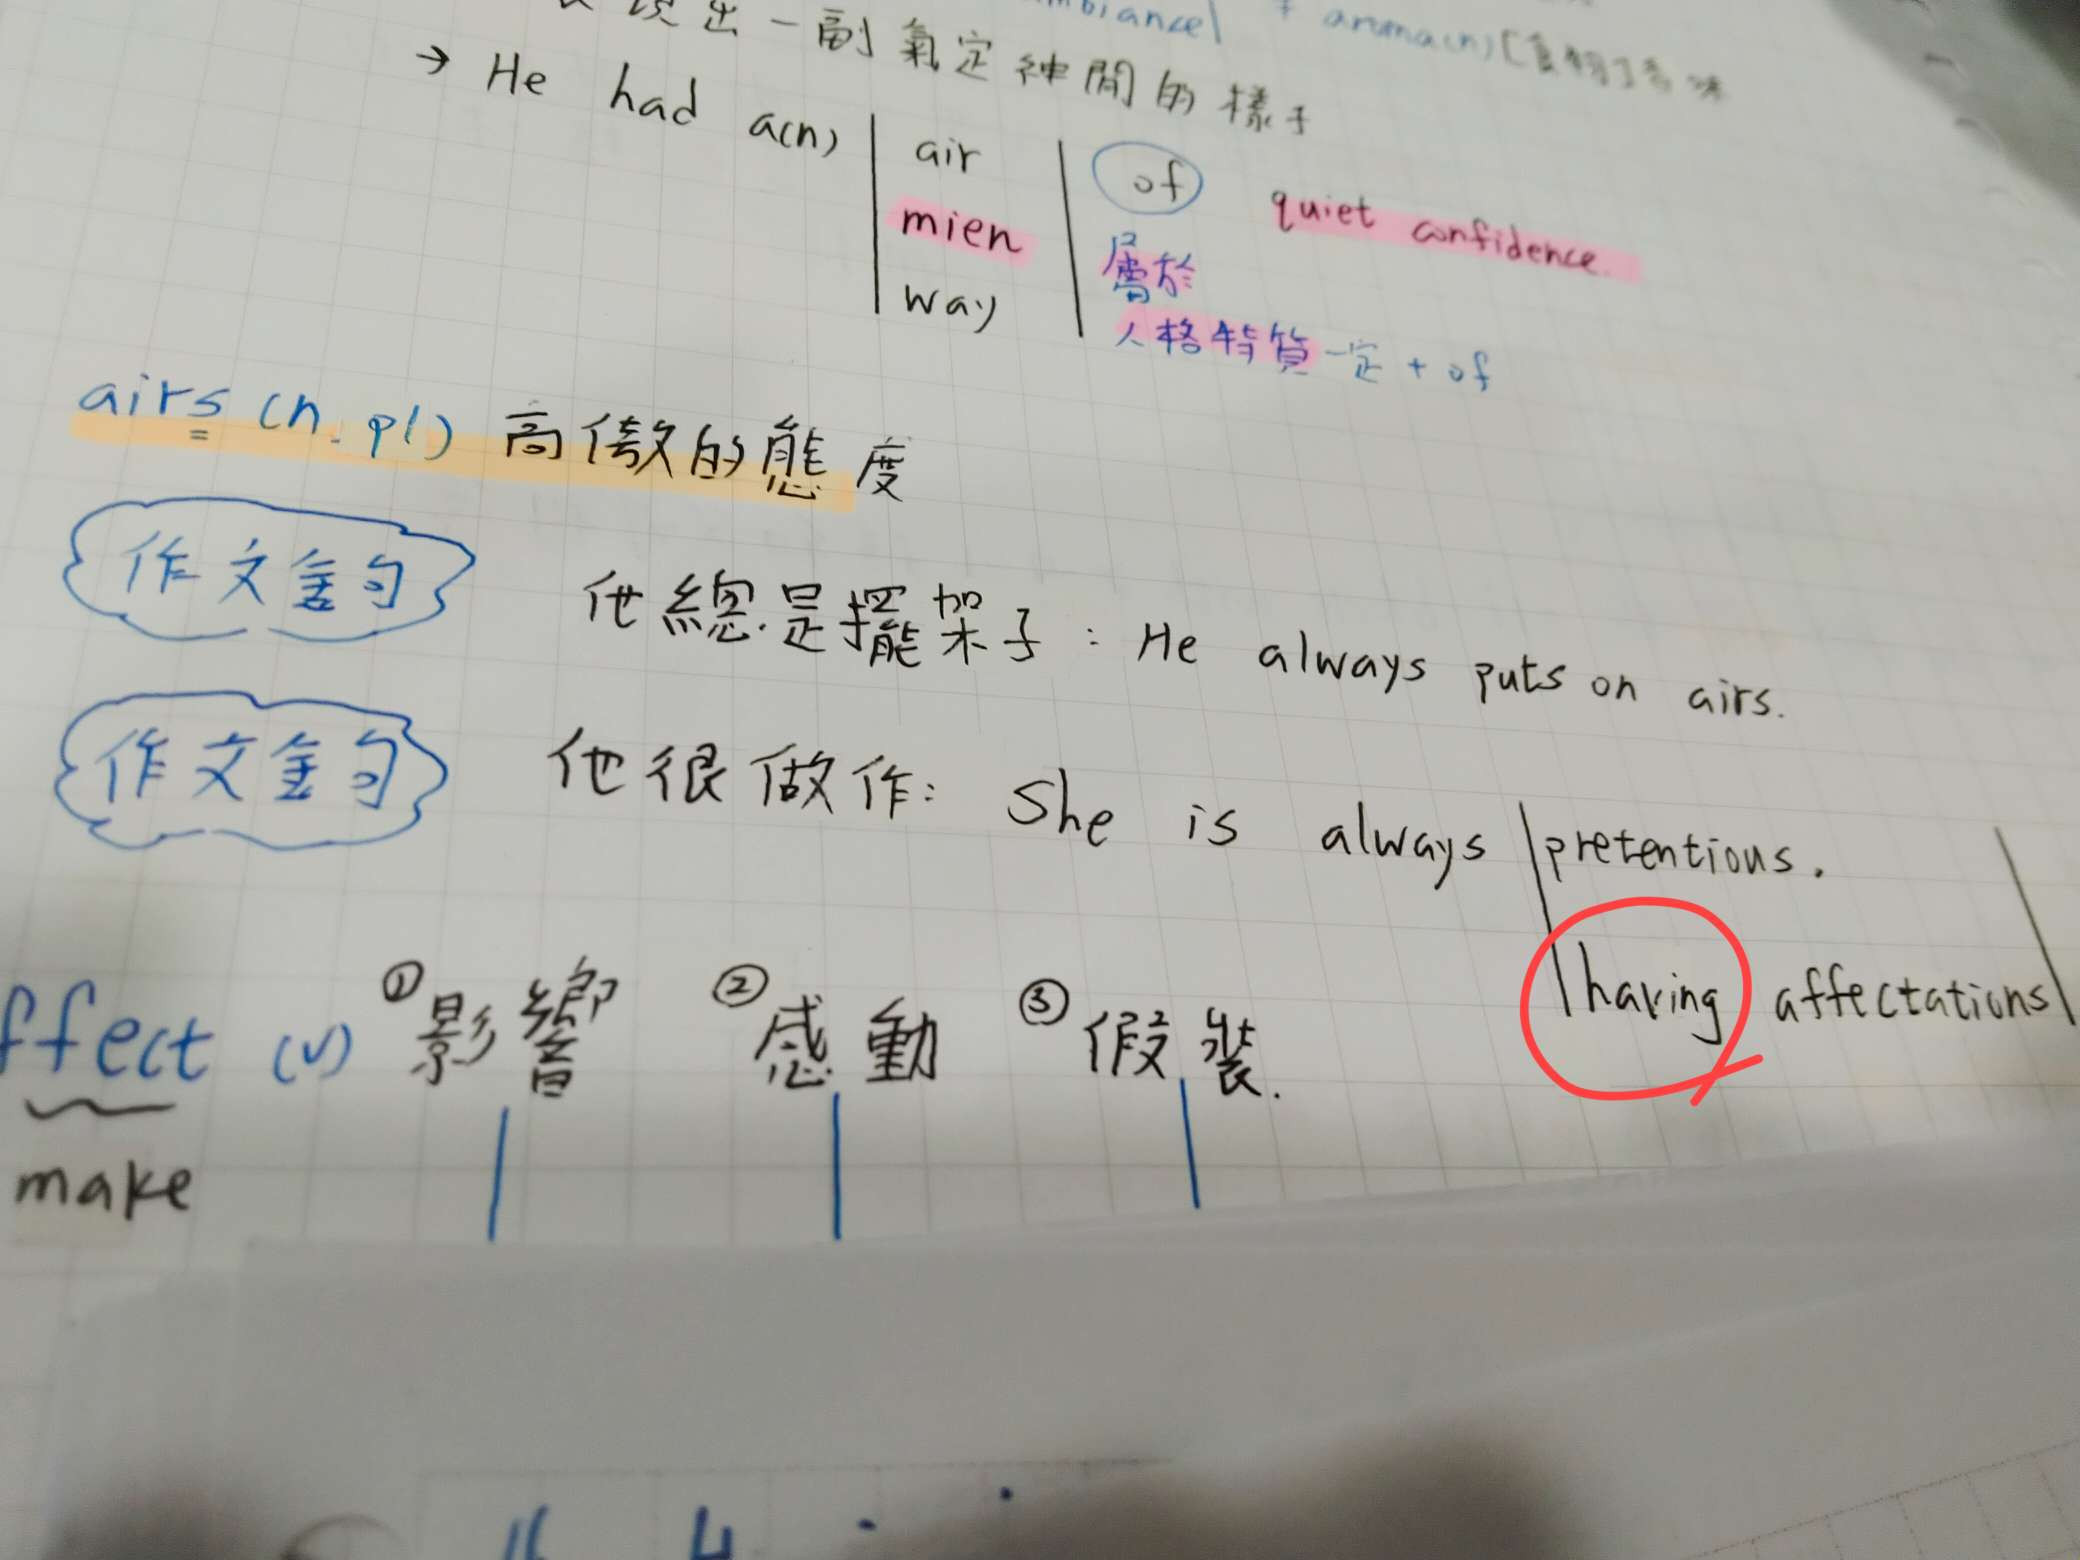 出一副氣定神閒的樣子
aroma(n)[食物]香味
→ He had a(n) air of quiet confidence.
mien 屬於
way 人格特質一定 + of
airs (n. pl) 高傲的態度
作文金句 他總是擺架子: He always puts on airs.
作文金句 他很做作: She is always pretentious.
having affectations
ffect (v) ①影響 ②感動 ③假裝.
make